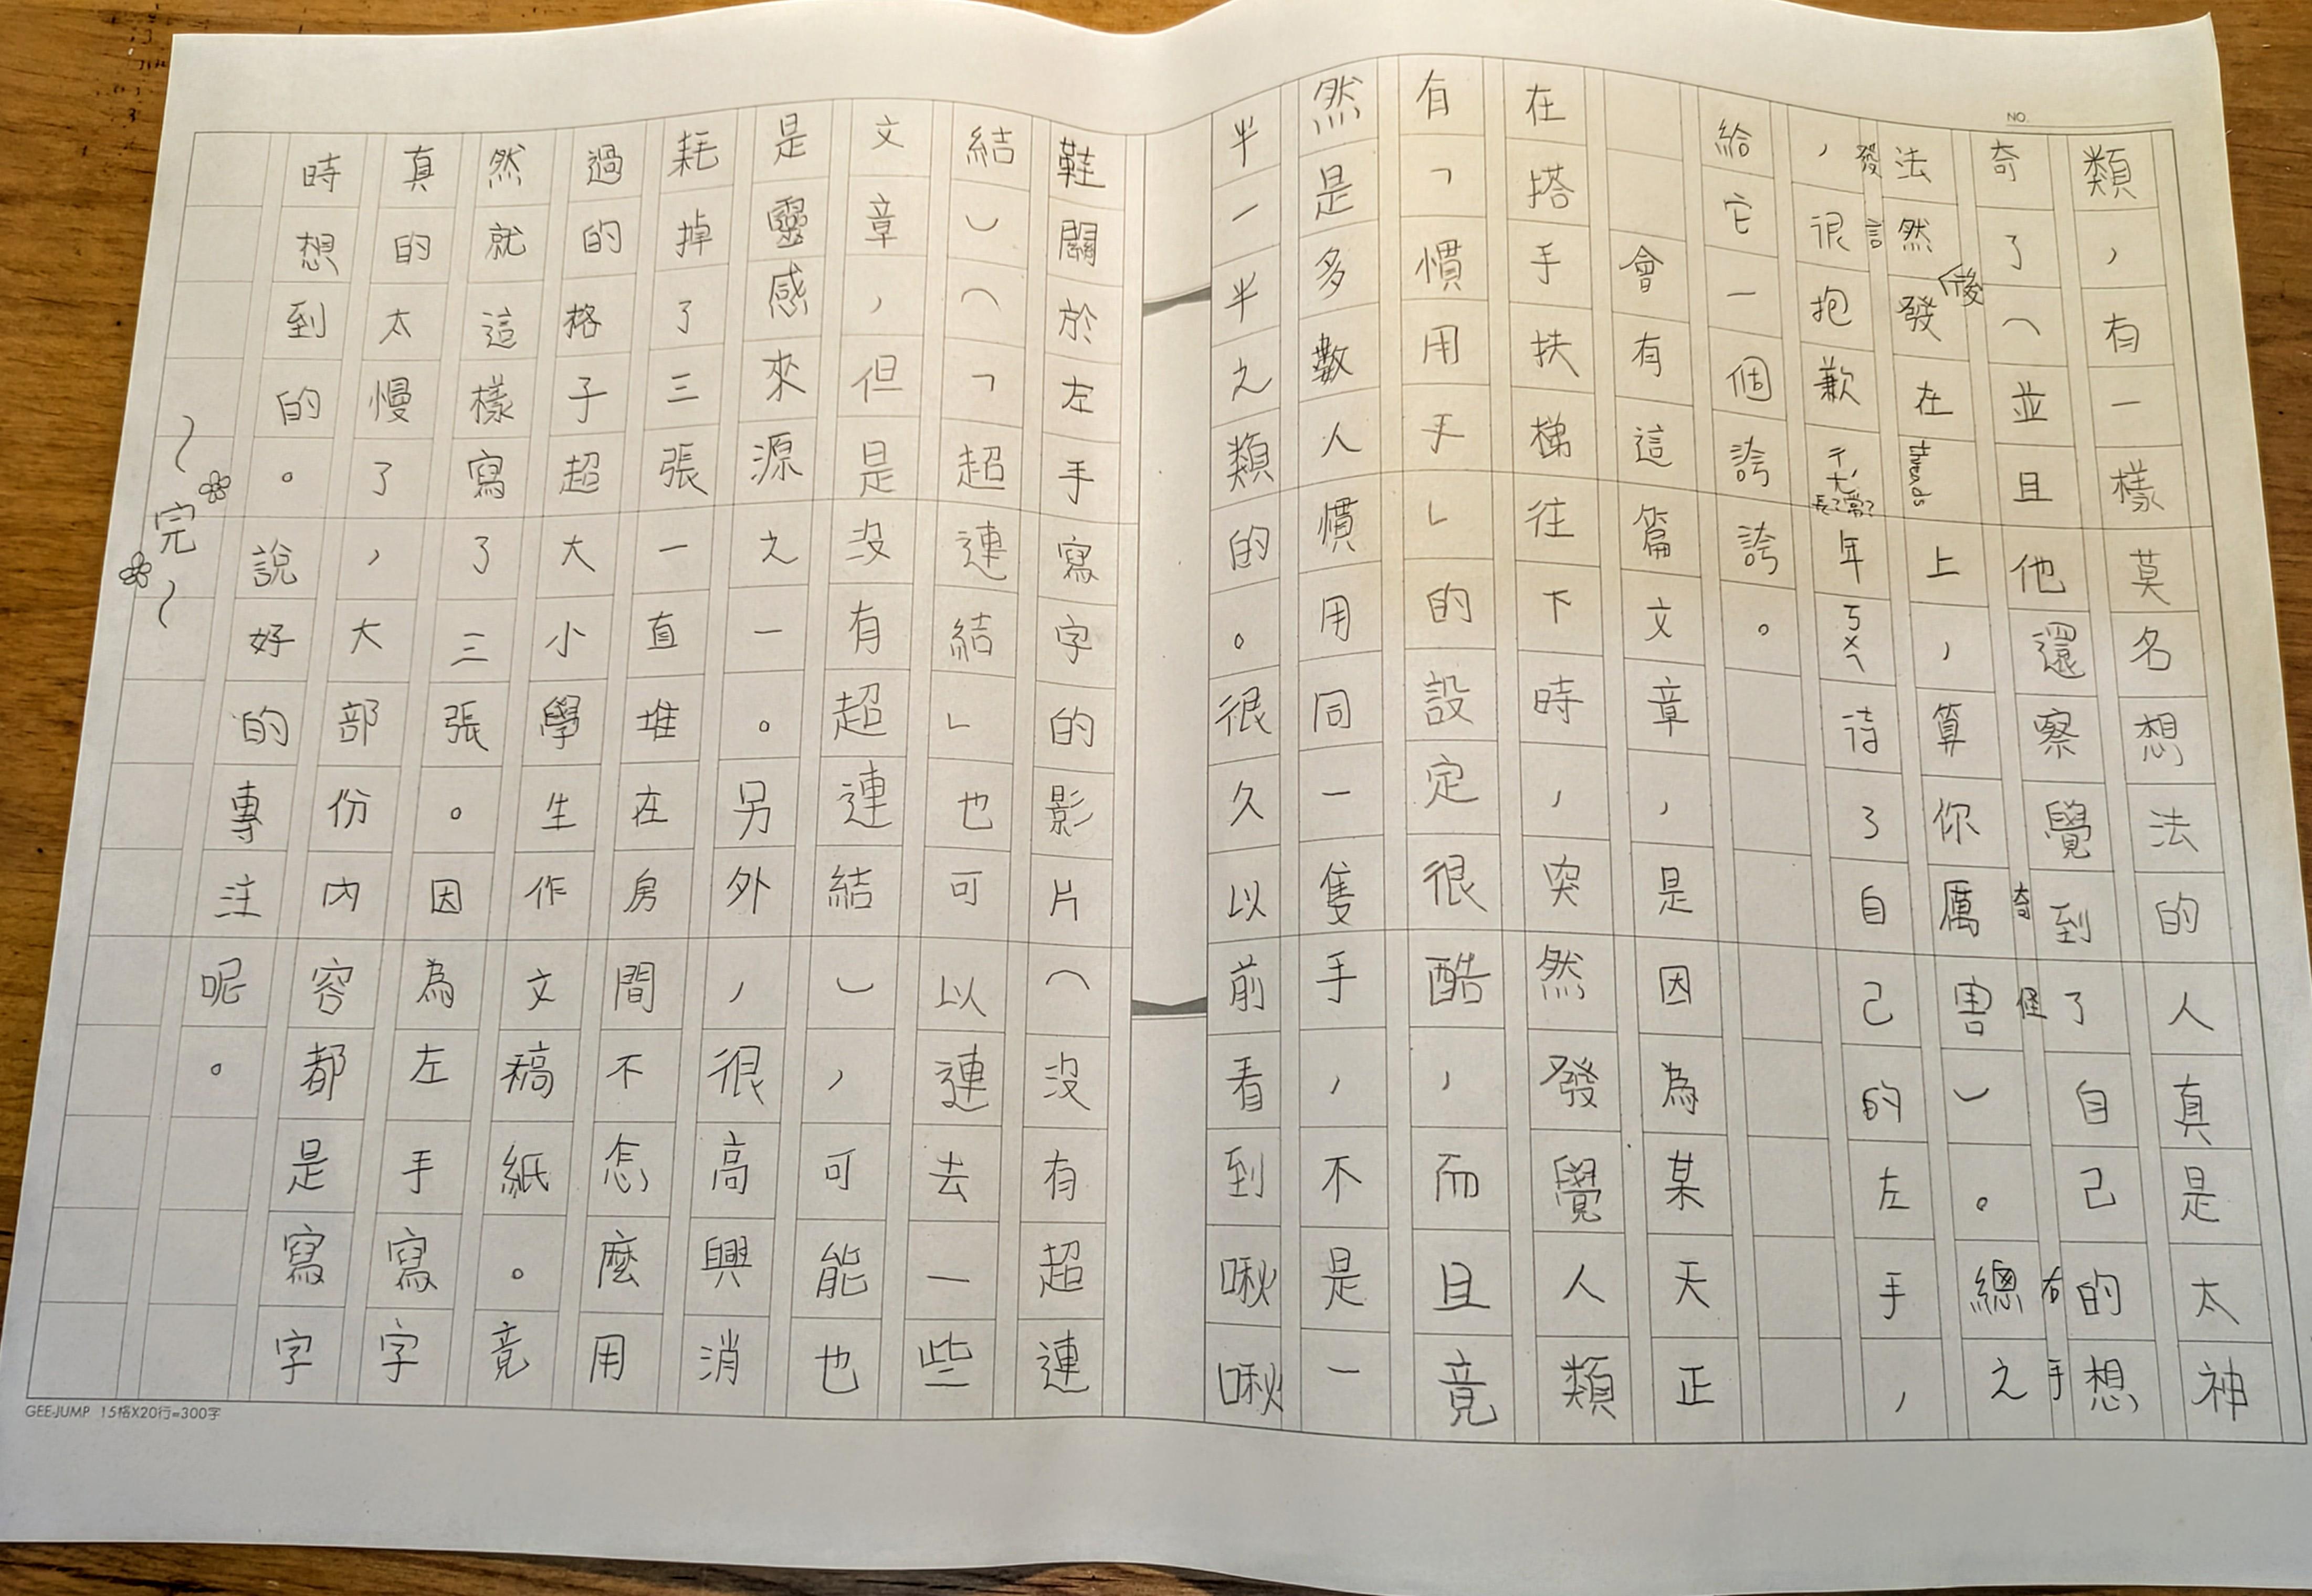 NO.
類，有一樣莫名想法的人真是太神
奇了（並且他還察覺到了自己的想
奇怪右手
法然後發在threads上，算你厲害）。總之
發言
，很抱歉ㄔㄤˊ年ㄎㄨㄟ待了自己的左手，
長？常？
給它一個誇誇。
會有這篇文章，是因為某天正
在搭手扶梯往下時，突然發覺人類
有「慣用手」的設定很酷，而且竟
然是多數人慣用同一隻手，不是一
半一半之類的。很久以前看到啾啾
鞋關於左手寫字的影片（沒有超連
結）（「超連結」也可以連去一些
文章，但是沒有超連結），可能也
是靈感來源之一。另外，很高興消
耗掉了三張一直堆在房間不怎麼用
過的格子超大小學生作文稿紙。竟
然就這樣寫了三張。因為左手寫字
真的太慢了，大部份內容都是寫字
時想到的。說好的專注呢。
～完～
GEE-JUMP 15格X20行=300字